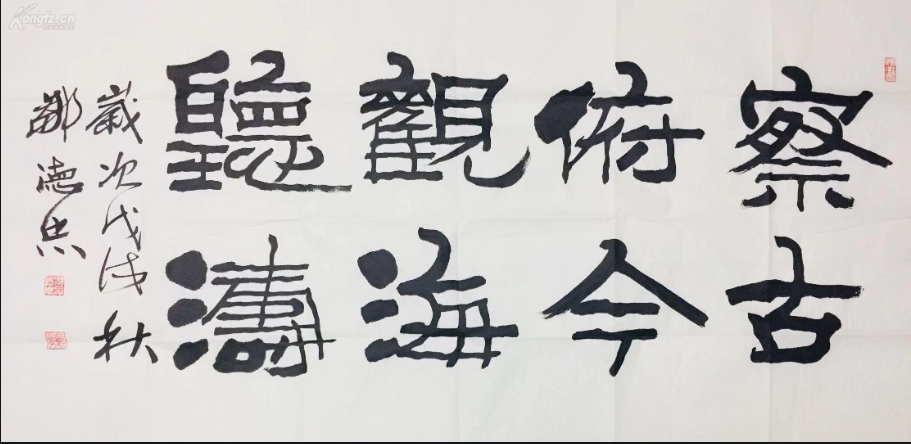 察古
俯今
觀海
聽濤
歲次戊戌秋
鄒德忠
Kongfz.cn